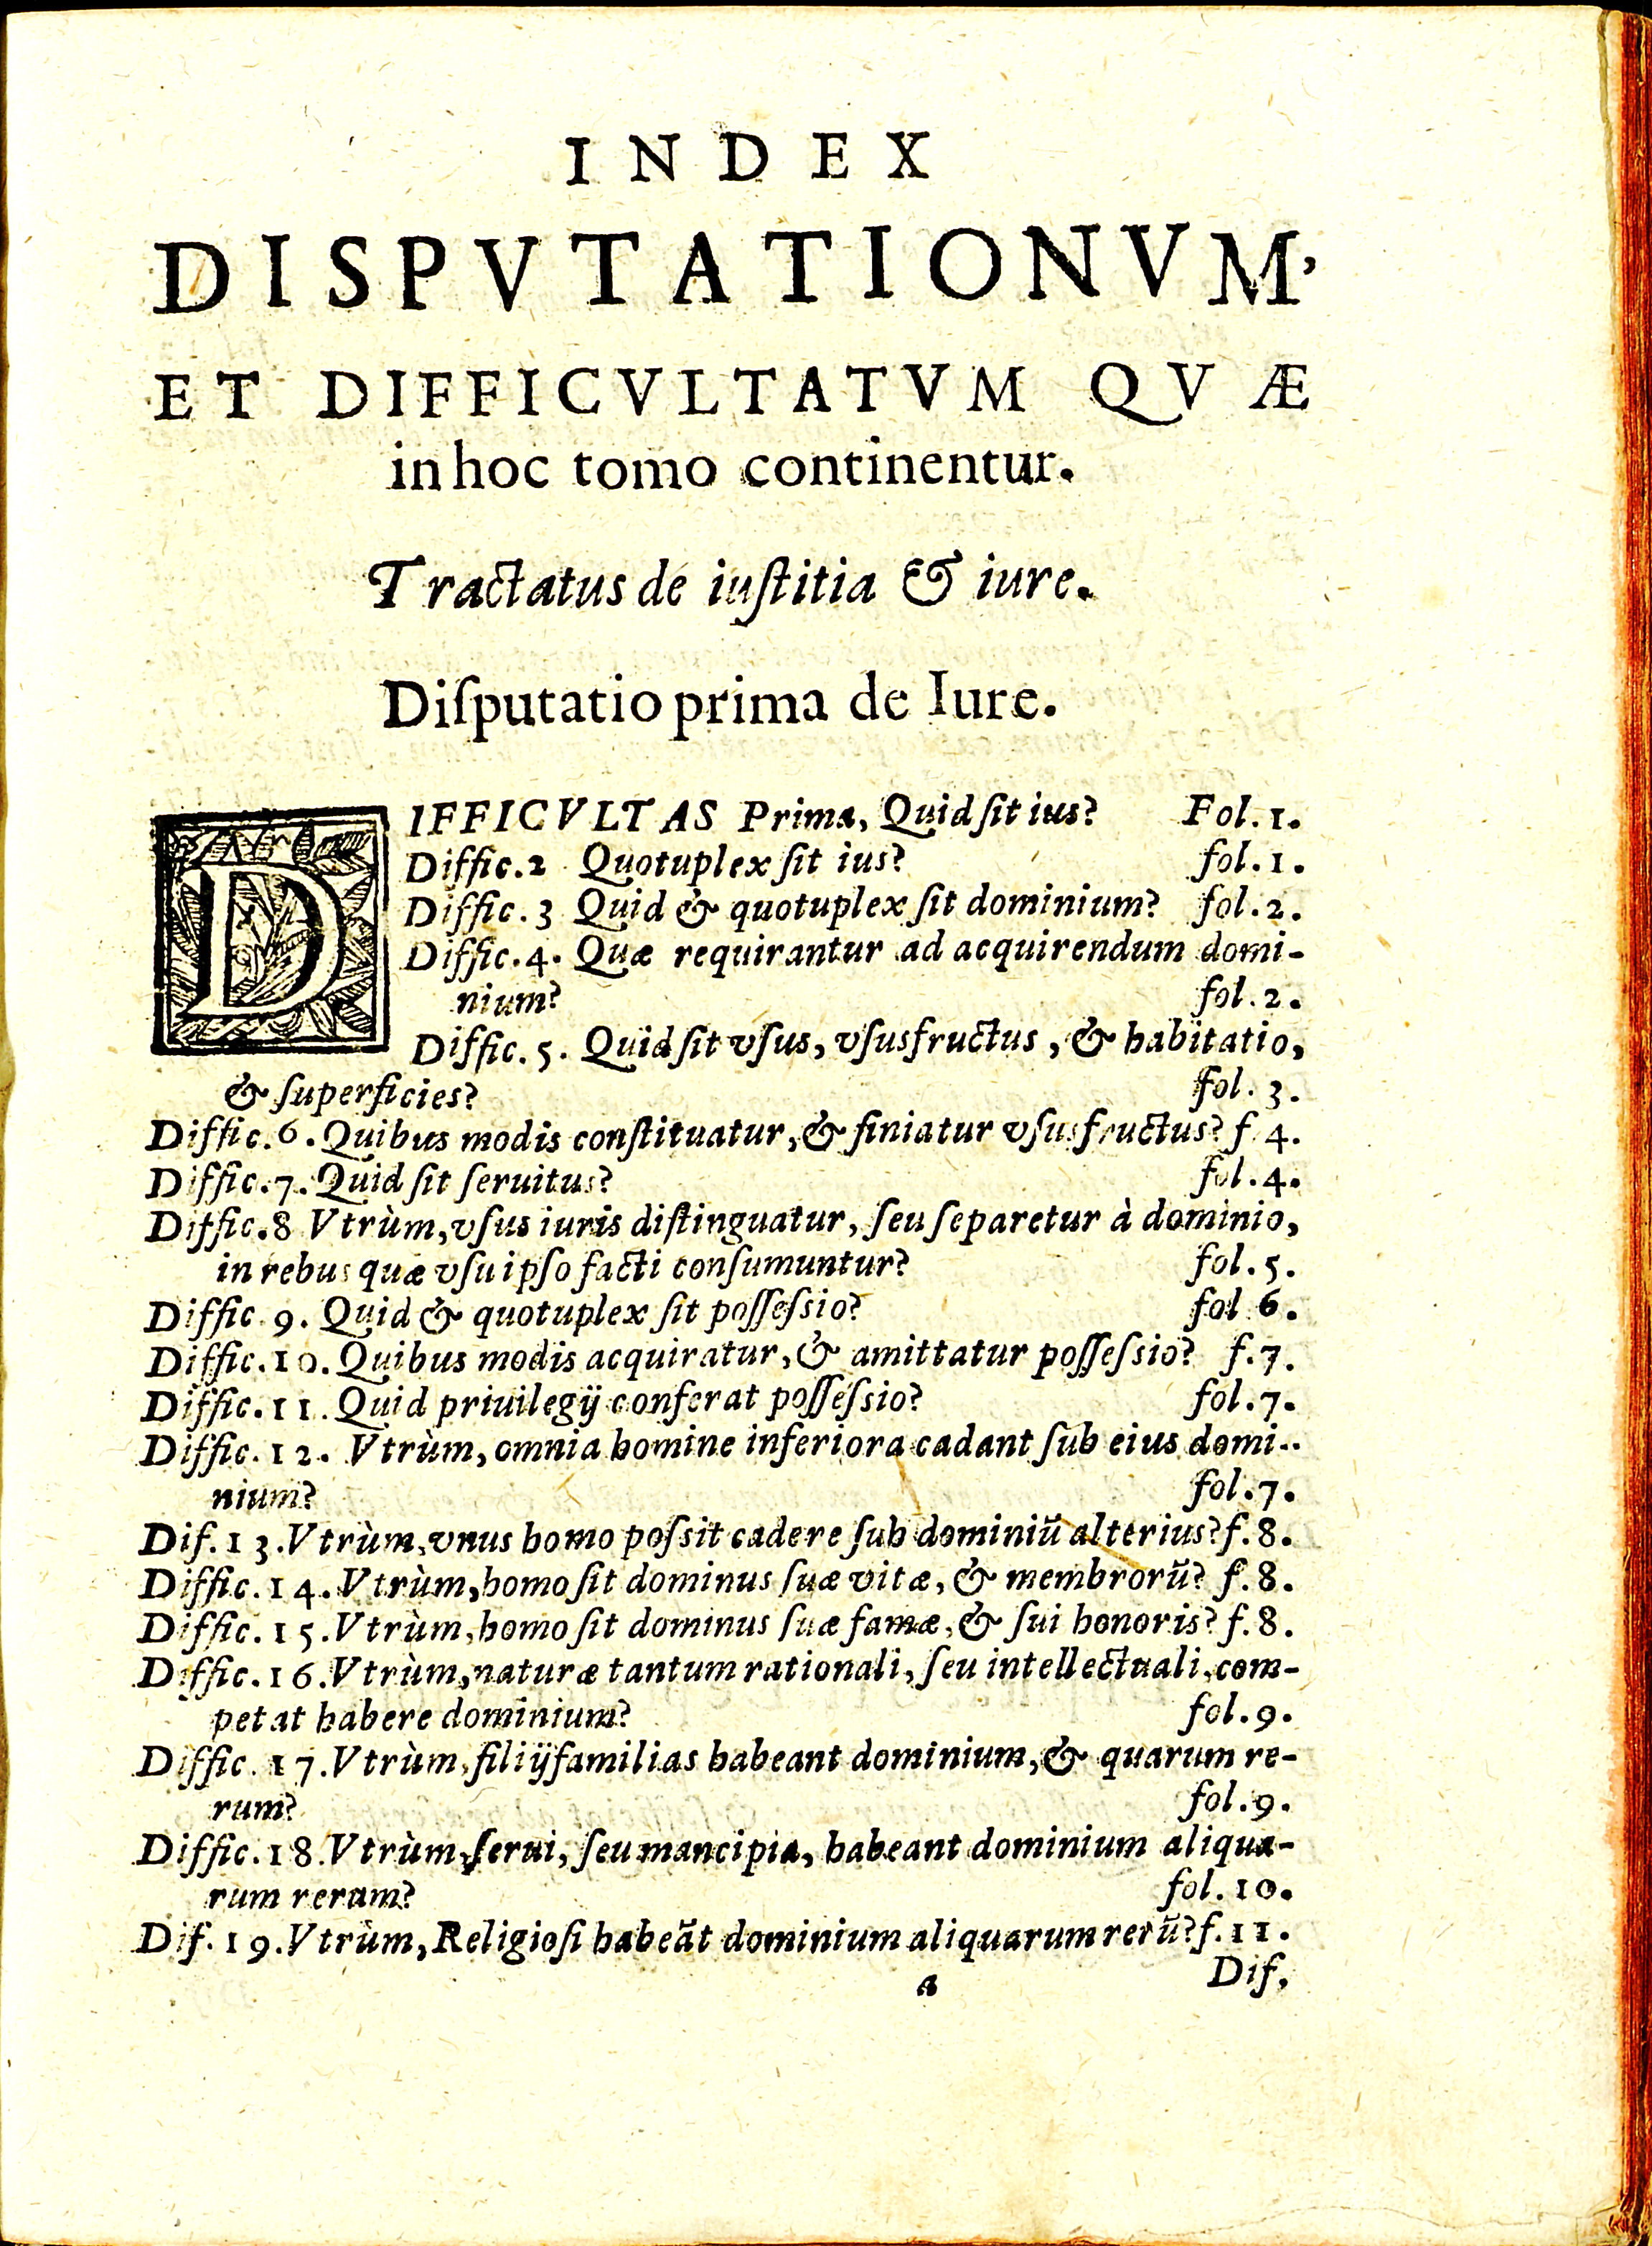 INDEX
DISPVTATIONVM,
ET DIFFICVLTATVM QVÆ
in hoc tomo continentur.
Tractatus de iuſtitia & iure.
Diſputatio prima de Iure.
DIFFICVLTAS Prima, Quid ſit ius? Fol. 1.
Diffic. 2 Quotuplex ſit ius? fol. 1.
Diffic. 3 Quid & quotuplex ſit dominium? fol. 2.
Diffic. 4. Quæ requirantur ad acquirendum domi-
nium? fol. 2.
Diffic. 5. Quid ſit vſus, vſusfructus, & habitatio,
& ſuperficies? fol. 3.
Diffic. 6. Quibus modis conſtituatur, & finiatur vſusfructus? f 4.
Diffic. 7. Quid ſit ſeruitus? fol. 4.
Diffic. 8 Vtrùm, vſus iuris diſtinguatur, ſeu ſeparetur à dominio,
in rebus quæ vſu ipſo facti conſumuntur? fol. 5.
Diffic. 9. Quid & quotuplex ſit poſſeſsio? fol 6.
Diffic. 10. Quibus modis acquiratur, & amittatur poſſeſsio? f. 7.
Diffic. 11. Quid priuilegij conferat poſſeſsio? fol. 7.
Diffic. 12. Vtrùm, omnia homine inferiora cadant ſub eius domi-
nium? fol. 7.
Dif. 13. Vtrùm, vnus homo poſsit cadere ſub dominiũ alterius? f. 8.
Diffic. 14. Vtrùm, homo ſit dominus ſuæ vitæ, & membrorũ? f. 8.
Diffic. 15. Vtrùm, homo ſit dominus ſuæ famæ, & ſui honoris? f. 8.
Diffic. 16. Vtrùm, naturæ tantum rationali, ſeu intellectuali, com-
petat habere dominium? fol. 9.
Diffic. 17. Vtrùm, filijfamilias habeant dominium, & quarum re-
rum? fol. 9.
Diffic. 18. Vtrùm, ſerui, ſeu mancipia, habeant dominium aliqua-
rum rerum? fol. 10.
Dif. 19. Vtrùm, Religioſi habeãt dominium aliquarum rerũ? f. 11.
a Dif,